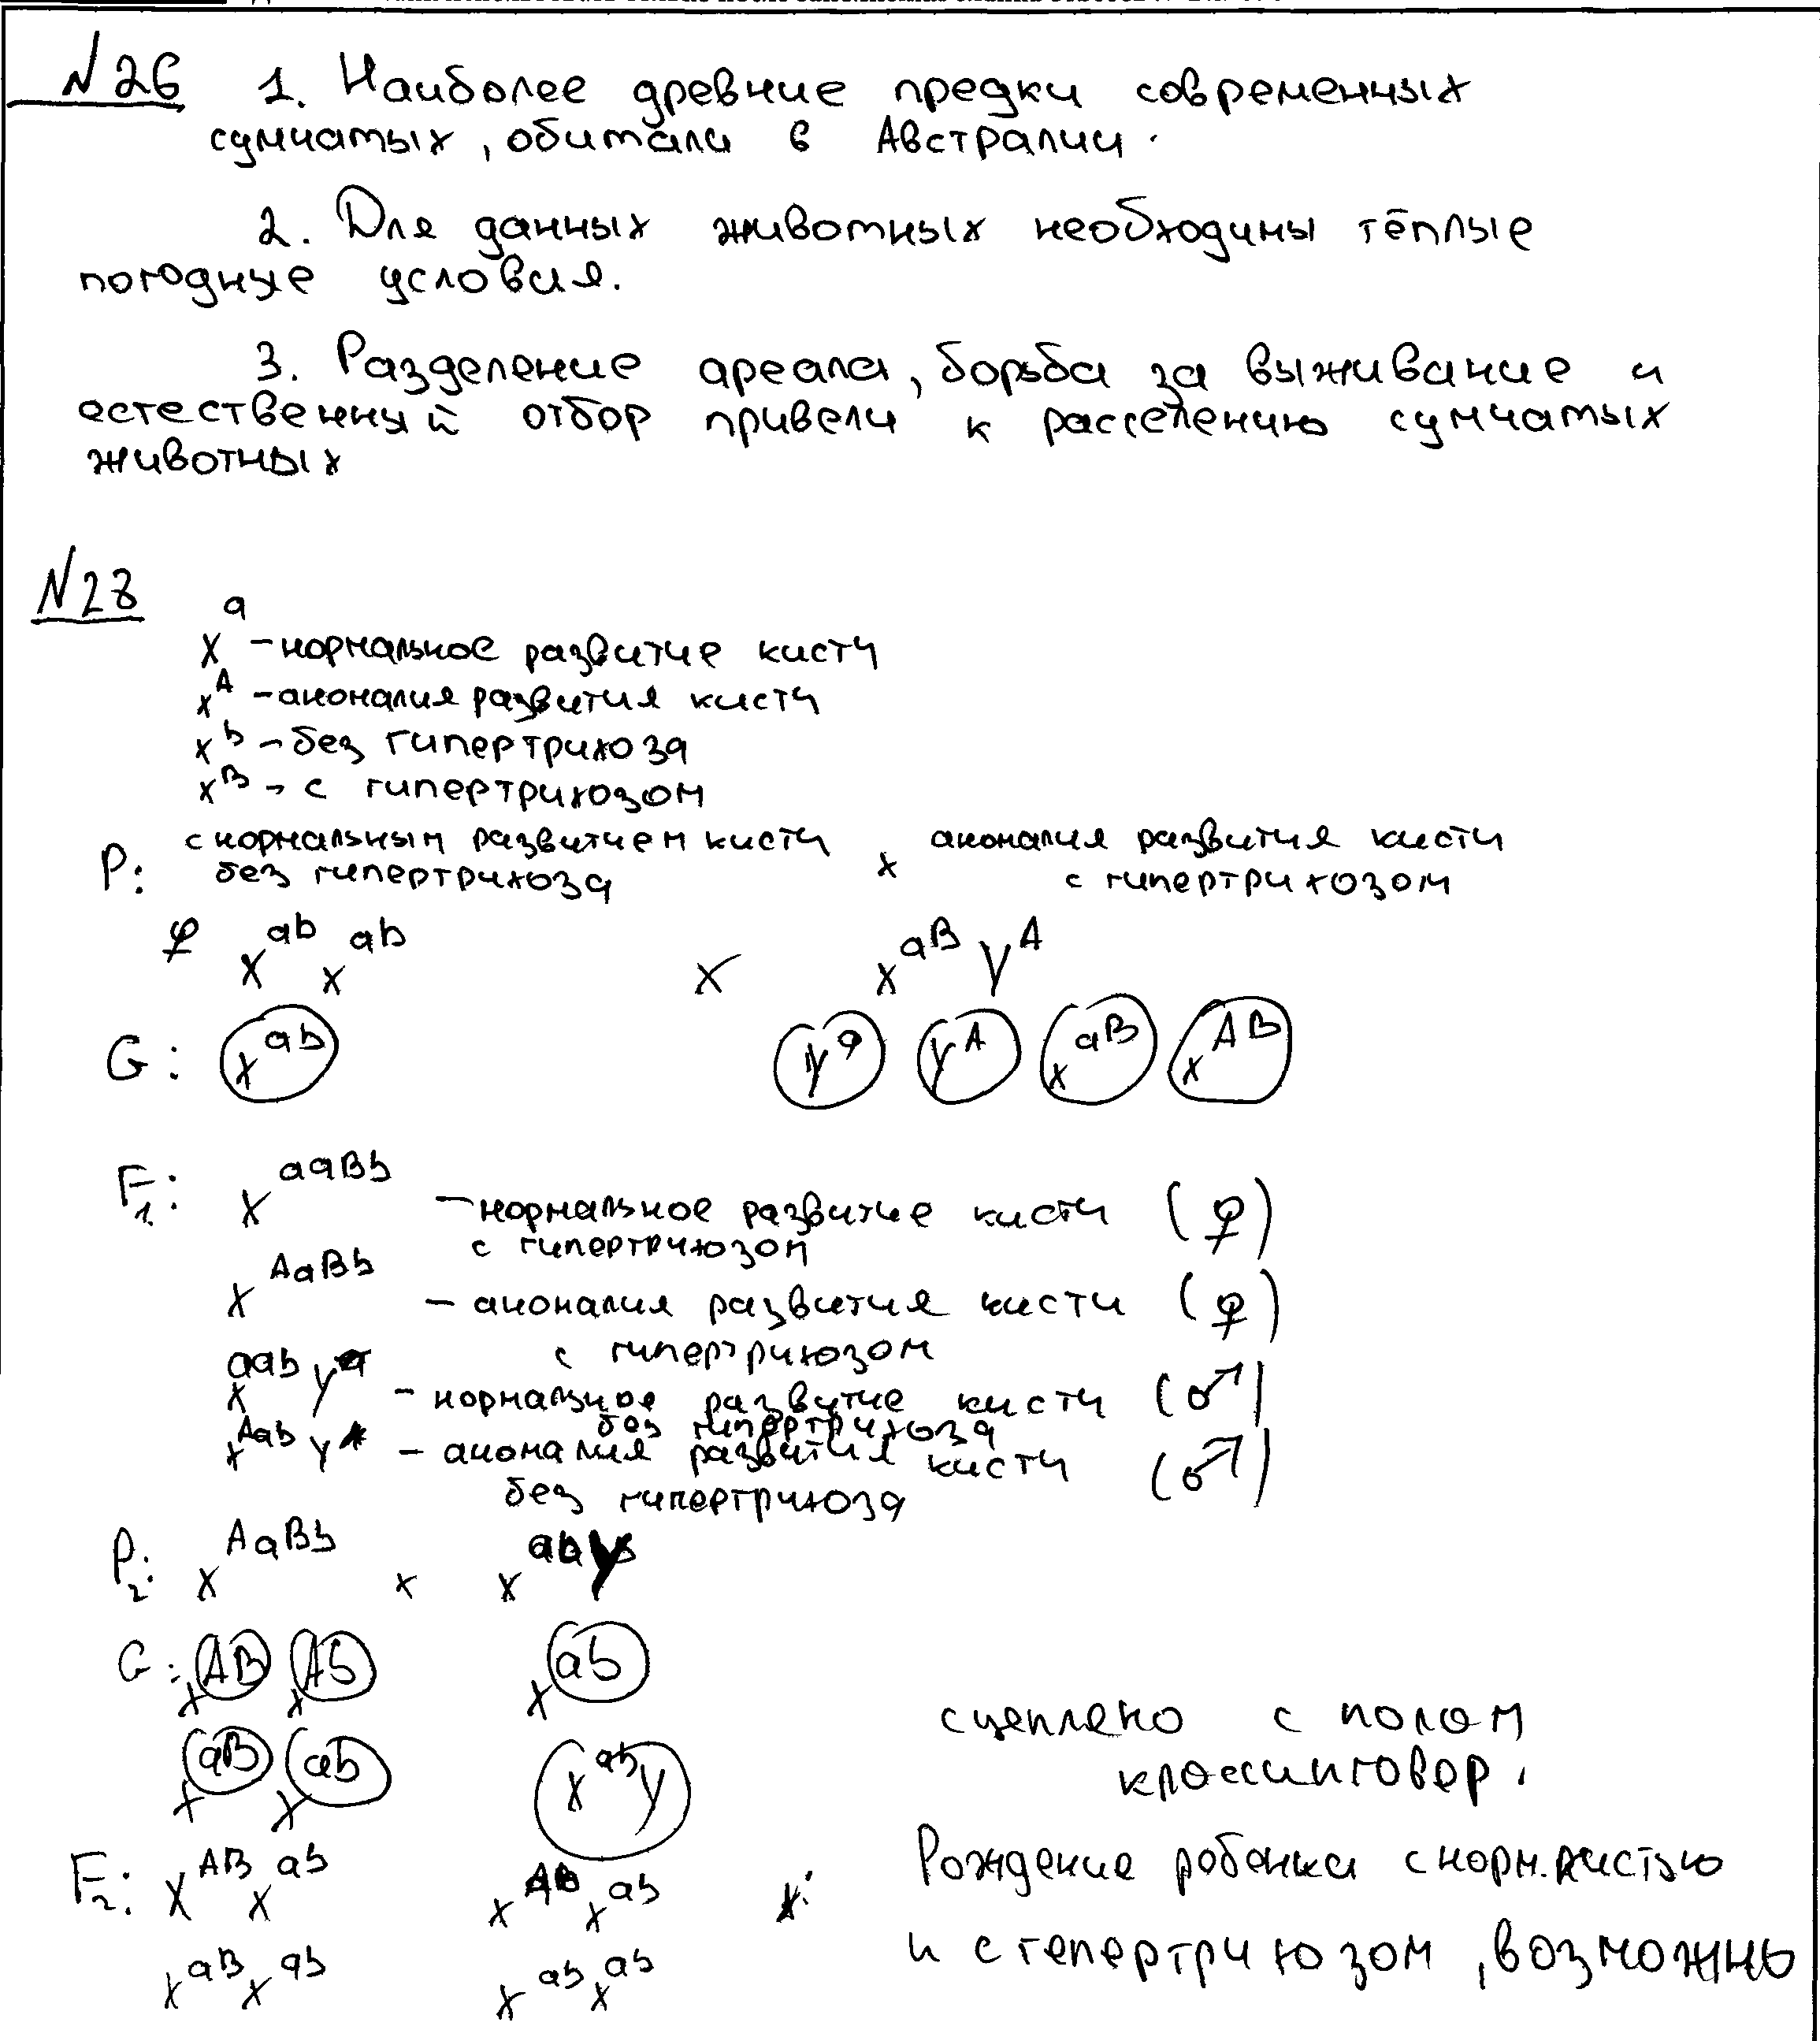 N26 1. Наиболее древние предки современных
сумчатых, обитали в Австралии.
2. Для данных животных необходимы тёплые
погодные условия.
3. Разделение ареала, борьба за выживание и
естественный отбор привели к расселению сумчатых
животных
N28
x^a - нормальное развитие кисти
x^A - аномалия развития кисти
x^b - без гипертрихоза
x^B - с гипертрихозом
P: с нормальным развитием кисти x аномалия развития кисти
без гипертрихоза с гипертрихозом
♀ x^ab x^ab x x^aB y^A
G: x^ab y^a y^A x^aB x^AB
F1: x^aaBb - нормальное развитие кисти (♀)
с гипертрихозом
x^AaBb - аномалия развития кисти (♀)
с гипертрихозом
x^aab y - нормальное развитие кисти (♂)
без гипертрихоза
x^Aab y - аномалия развития кисти (♂)
без гипертрихоза
P2: x^AaBb x x^ab y
G: x^AB x^Ab x^ab
x^aB x^ab x^ab y
сцеплено с полом
кроссинговер.
F2: x^AB x^ab x^Ab x^ab
x^aB x^ab x^ab x^ab
Рождение ребенка с норм. кистью
и с гепертрихозом, возможно